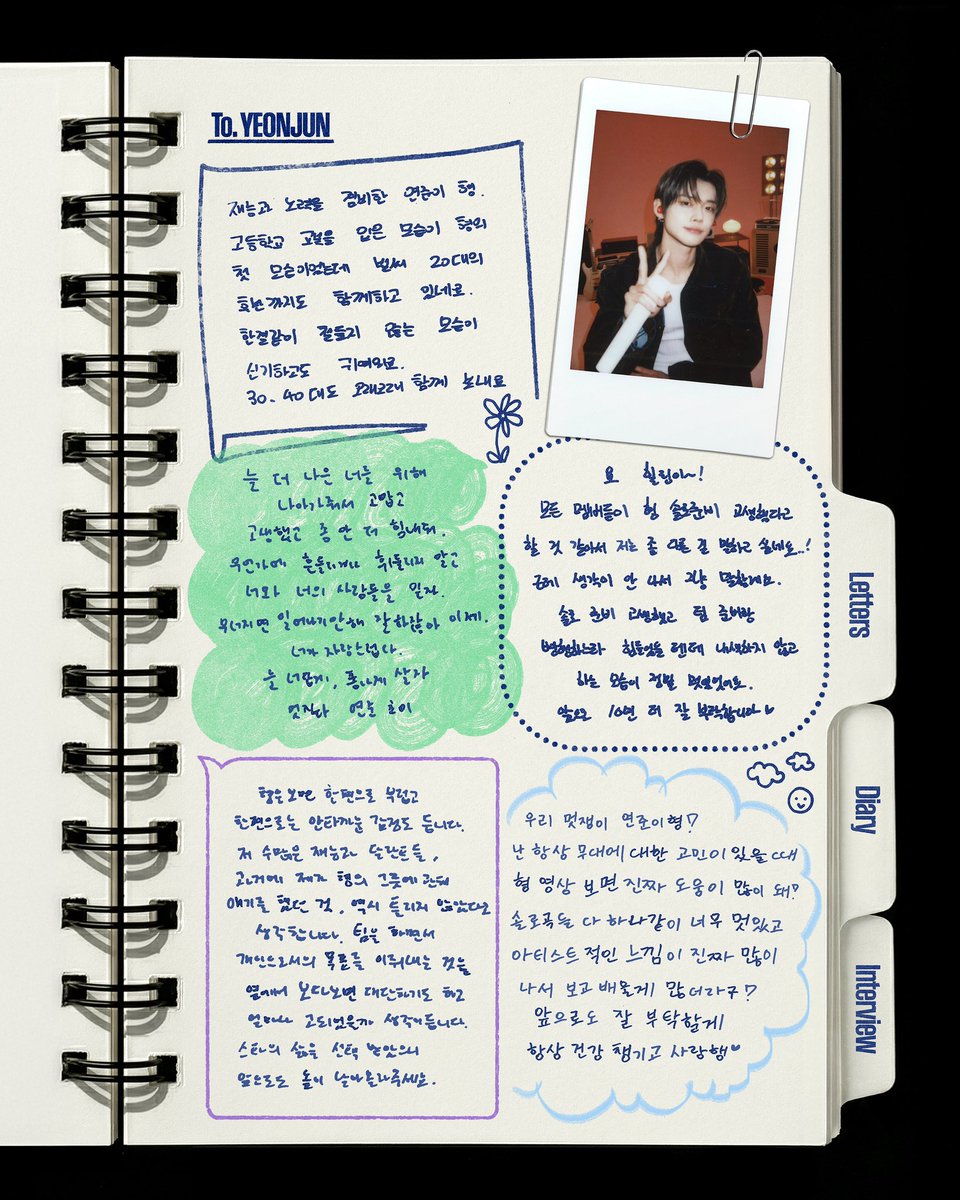 To. YEONJUN
재능과 노력을 겸비한 연준이 형.
고등학교 교복을 입은 모습이 형의
첫 모습이었는데 벌써 20대의
후반까지도 함께하고 있네요.
한결같이 잘들지 않는 모습이
신기하고도 귀여워요.
30. 40대도 오래오래 함께 보내요
늘 더 나은 너를 위해
나아가줘서 고맙고
고생했고 좀 만 더 힘내줘.
우연가에 흔들리거나 휘둘리지 말고
너와 너의 사람들을 믿자.
무너지면 일어나기만해 잘하잖아 이제.
너가 자랑스럽다.
늘 너답게, 폼나게 살자
멋지다 연준
요 힐링아~!
모든 멤버들이 형 솔로준비 고생했다고
할 것 같아서 저는 좀 다른 걸 말하고 싶네요..!
근데 생각이 안 나서 그냥 말할게요.
솔로 준비 고생했고 팀 준비랑
병행하느라 힘들었을 텐데 내색하지 않고
하는 모습이 정말 멋있었어요.
앞으로 10년 더 잘 부탁합니다♥
형을 보면 한편으로 부럽고
한편으로는 안타까운 감정도 듭니다.
저 수많은 재능과 달란트들,
과거에 제가 형의 그릇에 관해
얘기를 했던 것, 역시 틀리지 않았다고
생각합니다. 팀을 하면서
개인으로서의 목표를 이뤄내는 것을
옆에서 보다보면 대단하기도 하고
얼마나 고되었을까 생각이듭니다.
스타의 삶을 선택 받았으니
앞으로도 높이 날아올라주세요.
우리 멋쟁이 연준이형!?
난 항상 무대에 대한 고민이 있을 때
형 영상 보면 진짜 도움이 많이 돼!?
솔로곡들 다 하나같이 너무 멋있고
아티스트적인 느낌이 진짜 많이
나서 보고 배울게 많더라구!?
앞으로도 잘 부탁할게
항상 건강 챙기고 사랑행♥
Letters
Diary
Interview